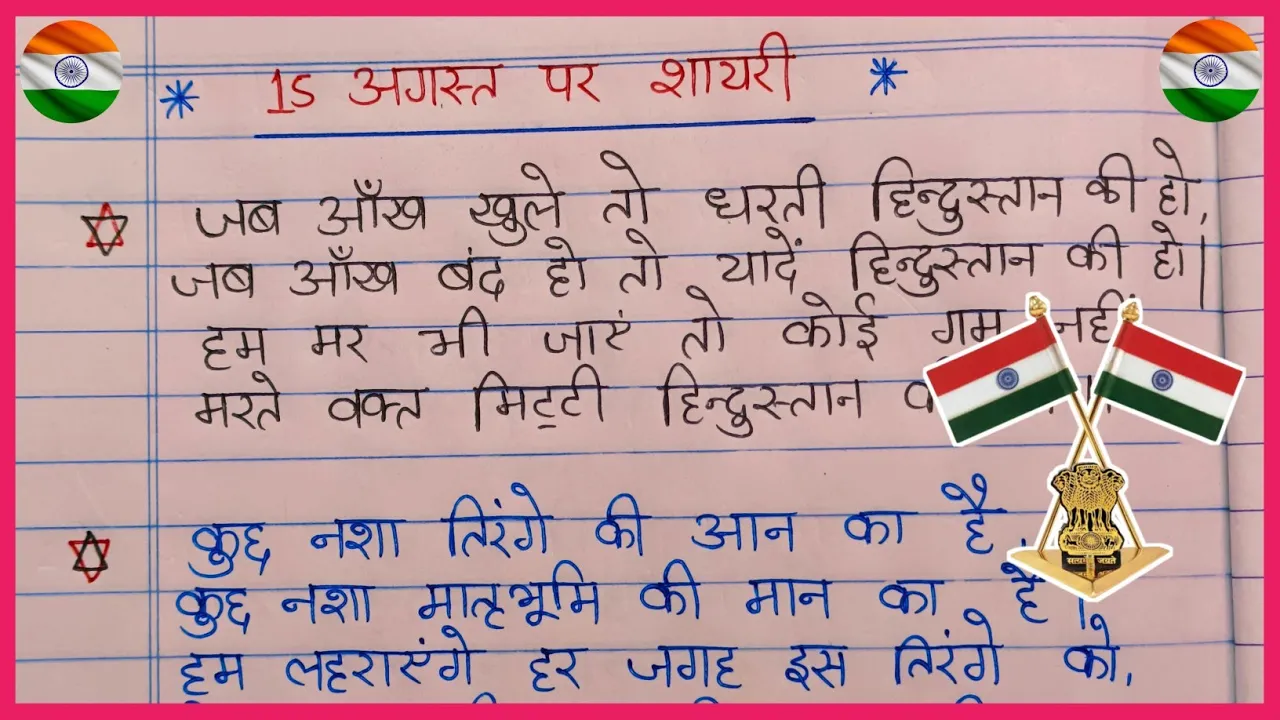 * 15 अगस्त पर शायरी *
जब आँख खुले तो धरती हिन्दुस्तान की हो,
जब आँख बंद हो तो यादें हिन्दुस्तान की हो।
हम मर भी जाएं तो कोई गम नहीं
मरते वक्त मिट्टी हिन्दुस्तान
कुछ नशा तिरंगे की आन का है
कुछ नशा मातृभूमि की मान का है।
हम लहराएंगे हर जगह इस तिरंगे को,